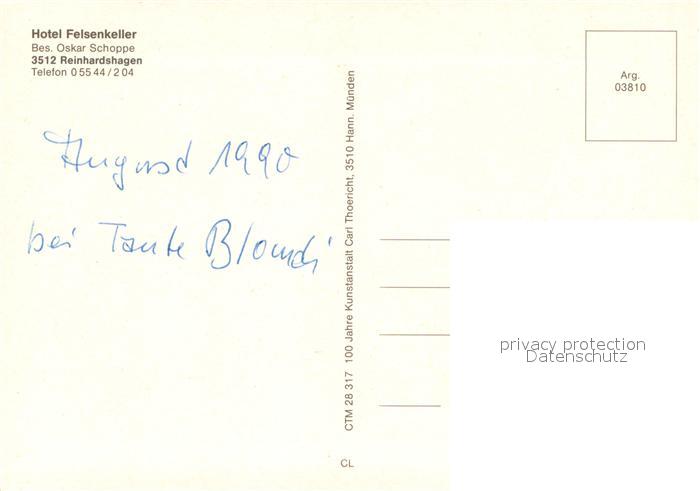 Hotel Felsenkeller
Bes. Oskar Schoppe
3512 Reinhardshagen
Telefon 0 55 44 / 2 04
Arg.
03810
August 1990
bei Tante Blondi
CTM 28 317 100 Jahre Kunstanstalt Carl Thoericht, 3510 Hann. Münden
CL
privacy protection
Datenschutz